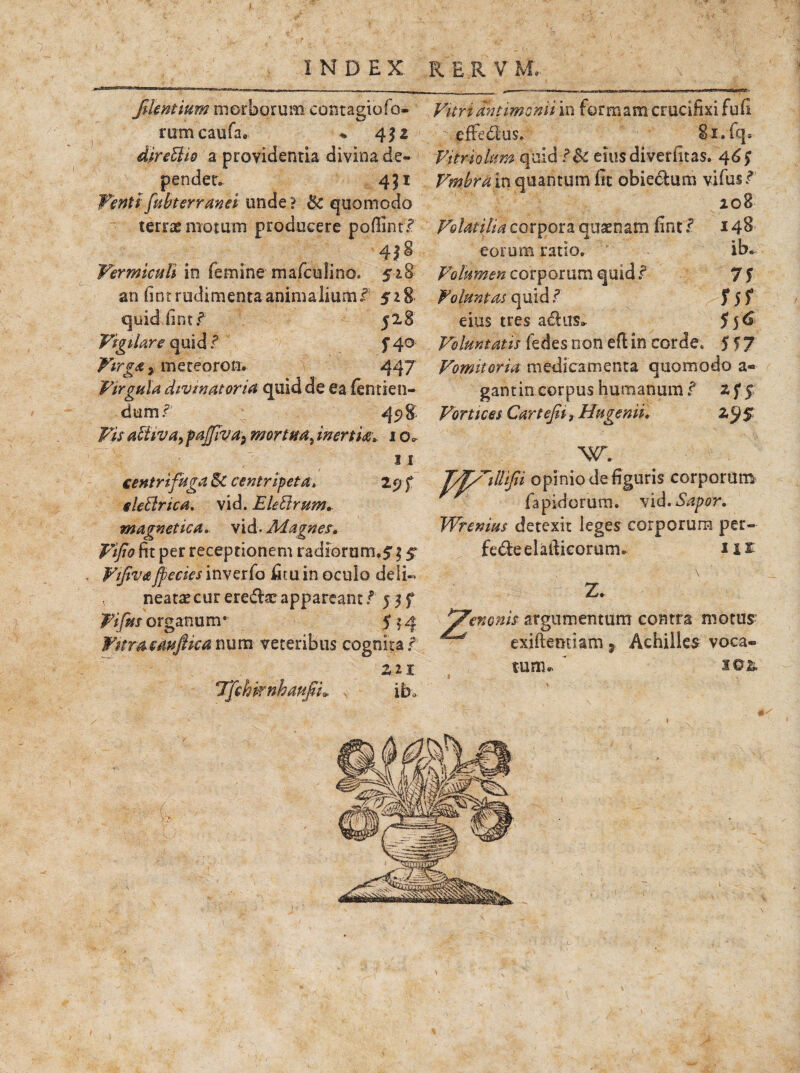 INDEX RERVM.
ſilentium morborum contagioſo-
rum cauſa. 432
directio a providentia divina de-
pendet. 431
Venti ſubterranei unde? & quomodo
terræ motum producere poſſint?
438
Vermiculi in ſemine maſculino. 528
an ſint rudimenta animalium? 528
quid ſint? 528
Vigilare quid? 540
Virgæ, meteoron. 447
Virgula divinatoria quid de ea ſentien-
dum? 498
Vis activa, paſſiva, mortua, inertiæ. 10.
11
centrifuga & centripeta. 295
electrica. vid. Electrum.
magnetica. vid. Magnes.
Viſio fit per receptionem radiorum. 535
Viſivæ ſpecies inverſo ſitu in oculo deli-
neatæ cur erectæ appareant? 535
Viſus organum. 534
Vitra cauſtica num veteribus cognita?
221
Tſchirnhauſii. ib.
Vitri antimonii in formam crucifixi fuſi
effectus. 81. ſq.
Vitriolum quid? & eius diverſitas. 465
Vmbra in quantum ſit obiectum viſus?
208
Volatilia corpora quænam ſint? 148
eorum ratio. ib.
Volumen corporum quid? 75
Voluntas quid? 555
eius tres actus. 556
Voluntatis ſedes non eſt in corde. 557
Vomitoria medicamenta quomodo a-
gant in corpus humanum? 255
Vortices Carteſii, Hugenii. 295
W.
Willlſii opinio de figuris corporum
ſapidorum. vid. Sapor.
Wrenius detexit leges corporum per-
fecte elaſticorum. 111
Z.
Zenonis argumentum contra motus
exiſtentiam, Achilles voca-
tum. 102